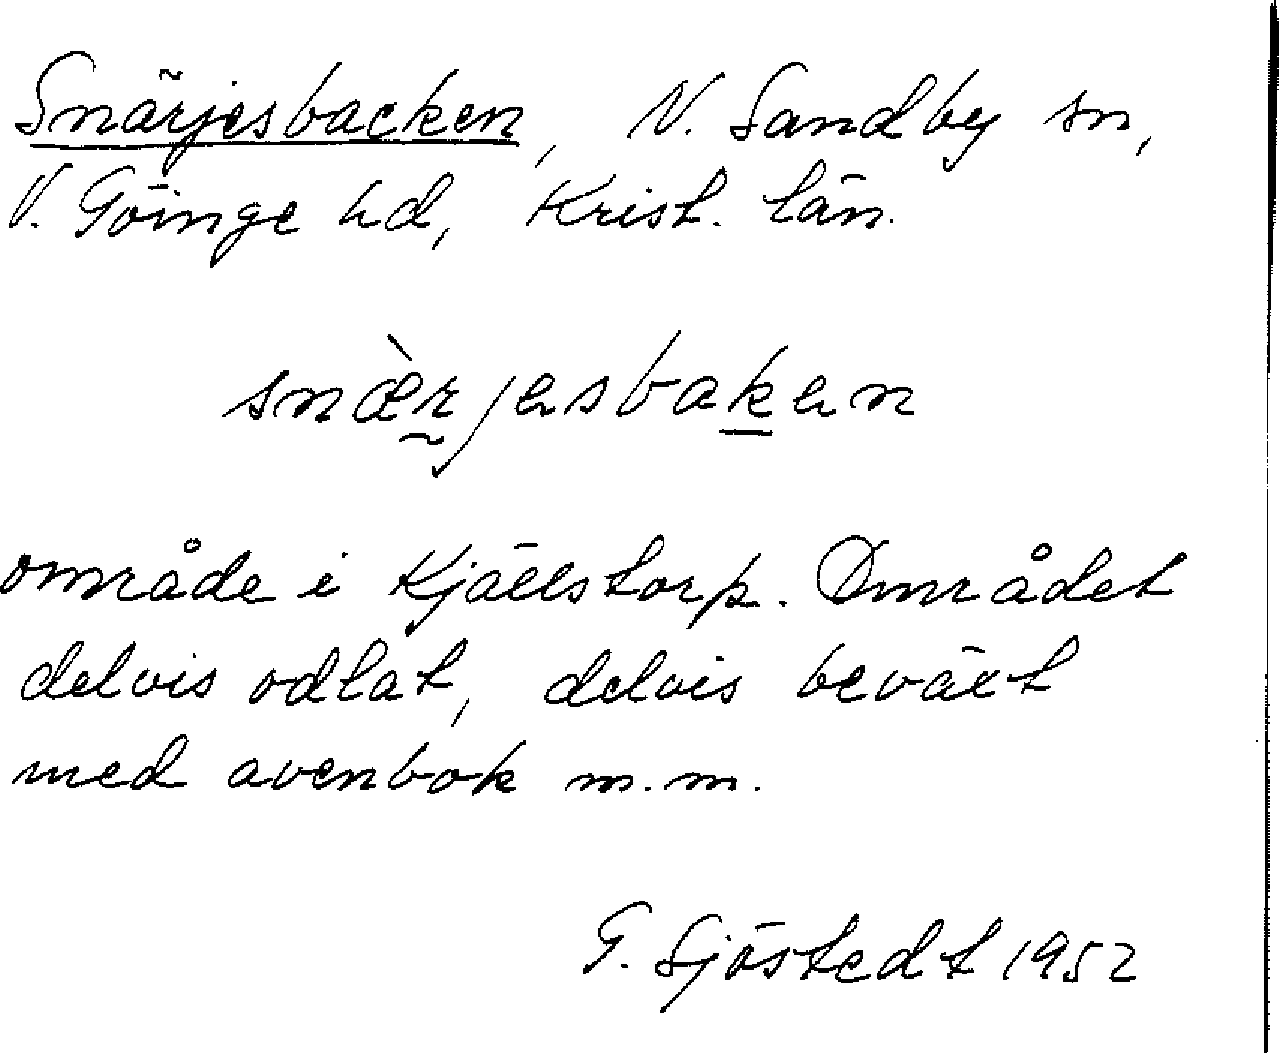 Snärjesbacken, N. Sandby sn,
V. Göinge hd, Krist. län.
snæ̀r̰jesbak̲en
område i Kjällstorp. Området
delvis odlat, delvis beväxt
med avenbok m.m.
G. Sjöstedt 1952